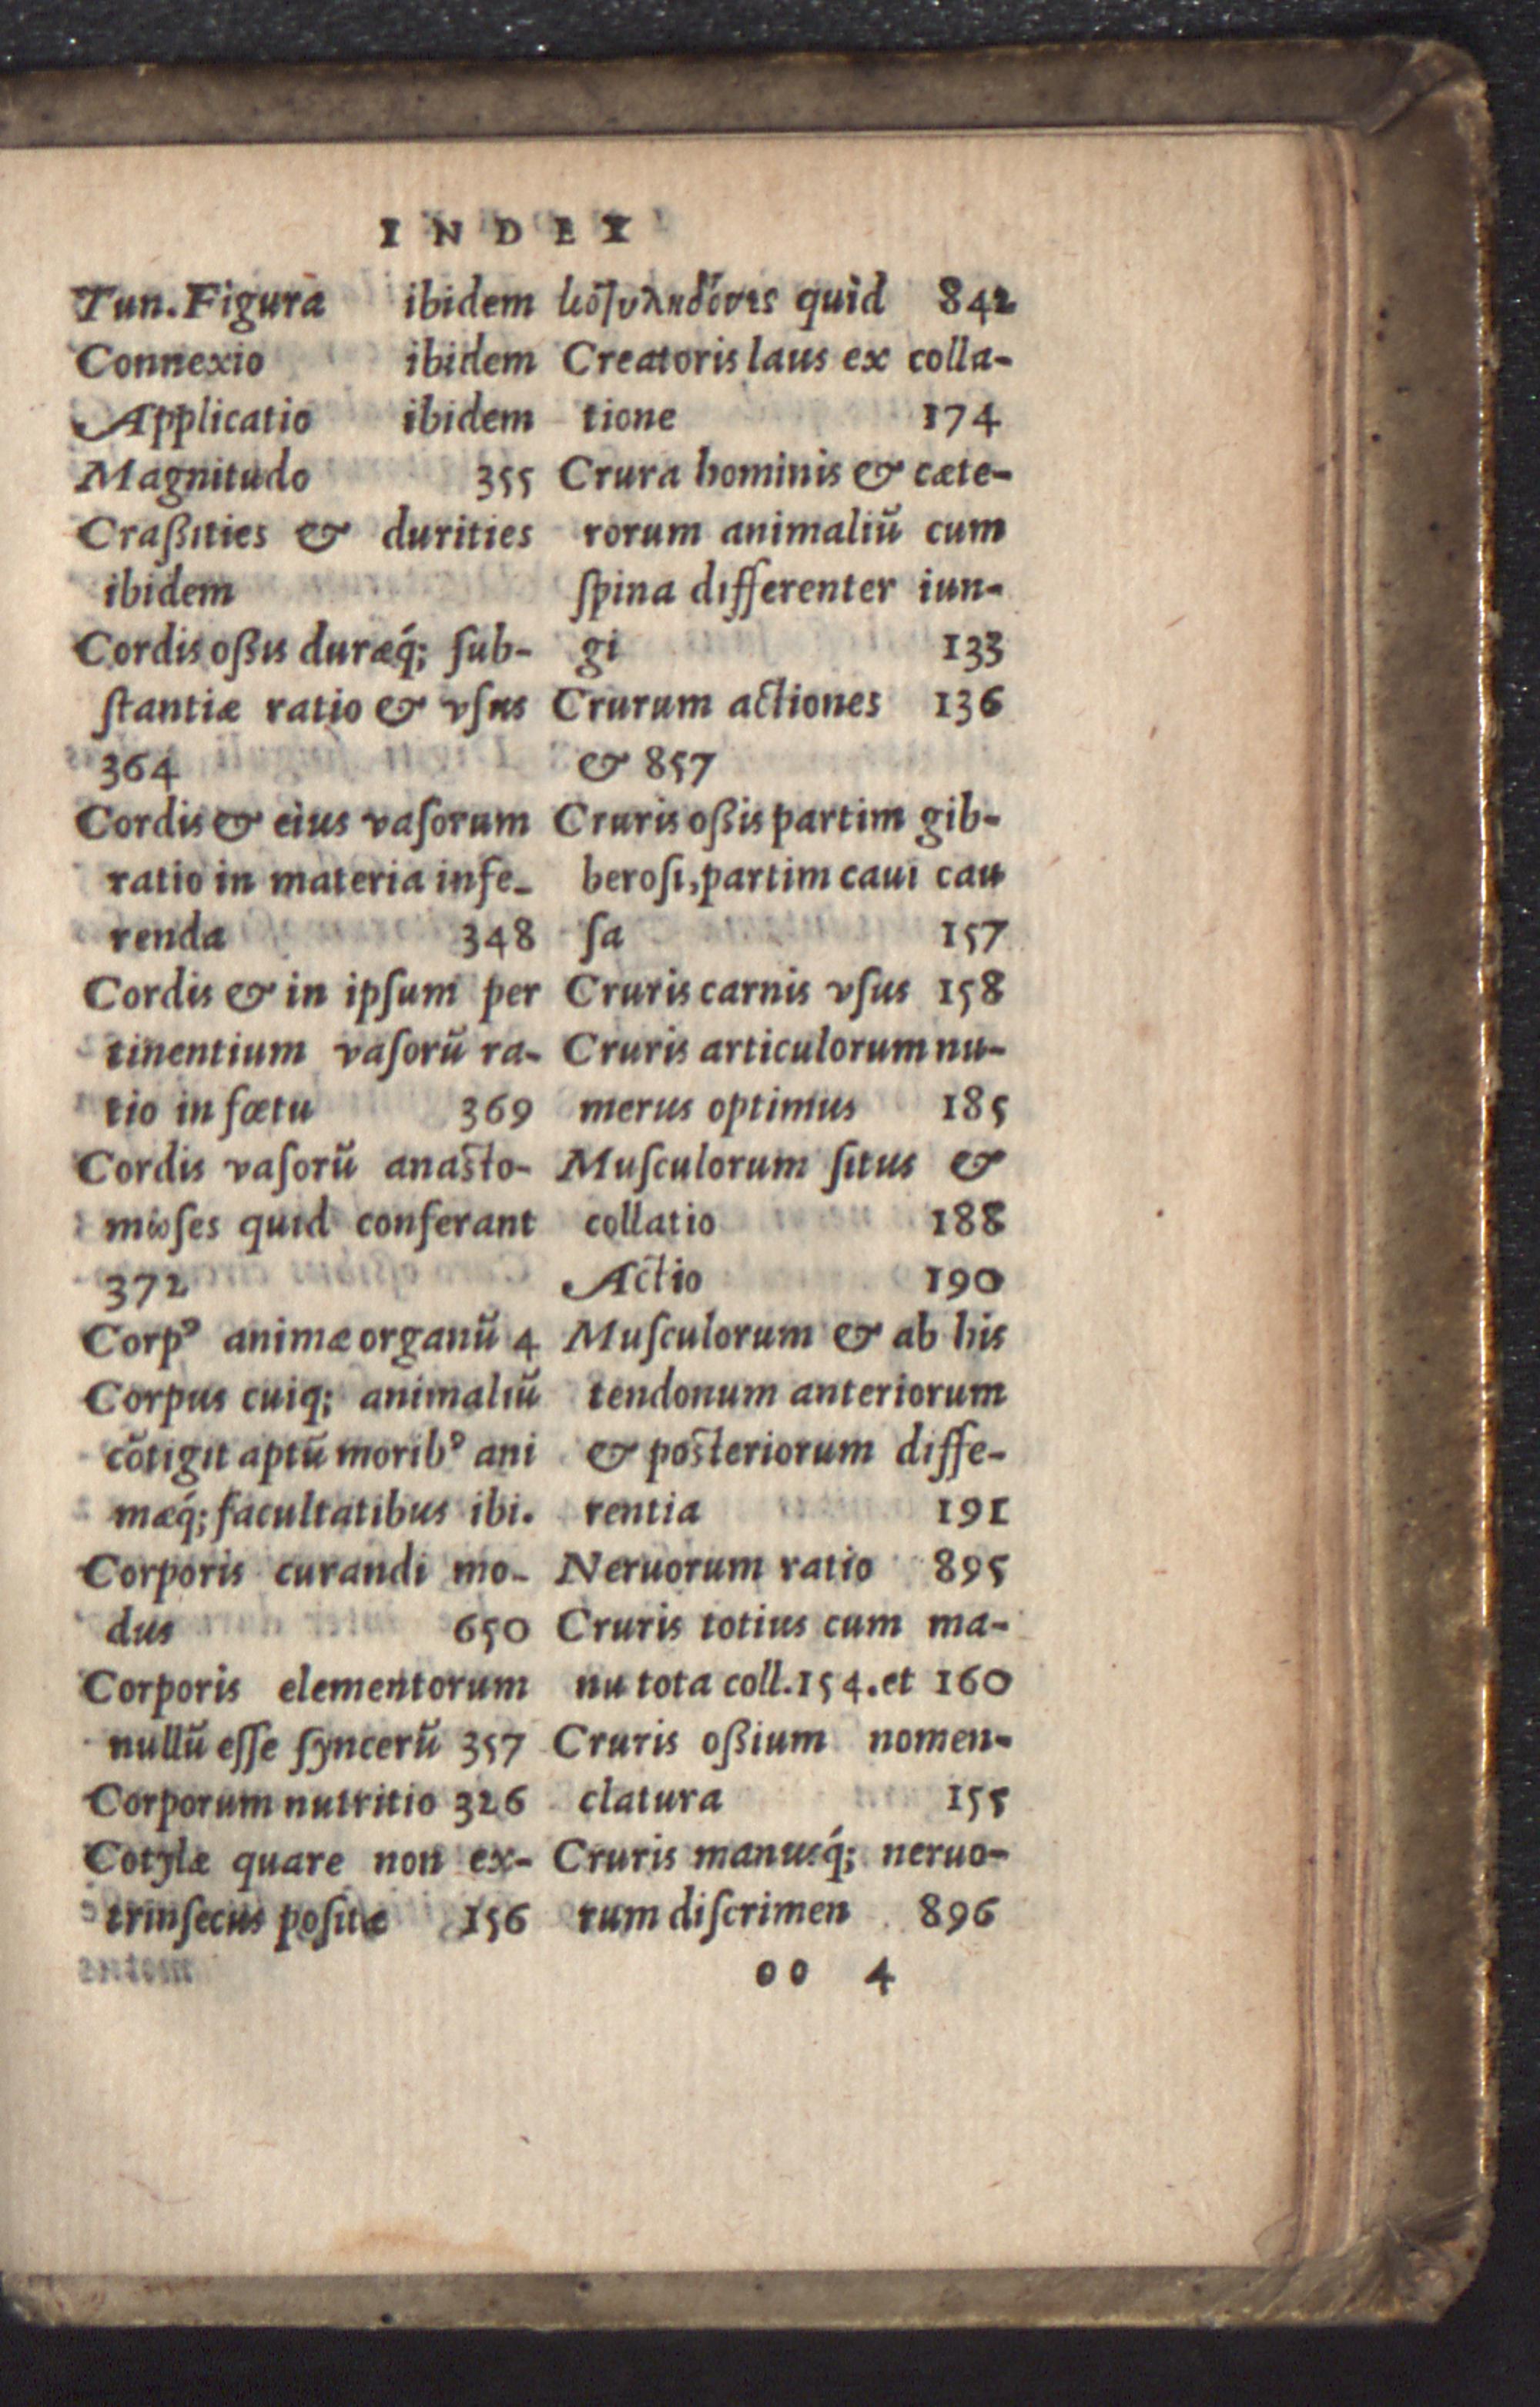 INDEX
Tun. Figura ibidem
Connexio ibidem
Applicatio ibidem
Magnitudo 355
Craßities & durities
ibidem
Cordis oßis duræq́; ſub-
ſtantiæ ratio & vſus
364
Cordis & eius vaſorum
ratio in materia infe-
renda 348
Cordis & in ipſum per
tinentium vaſorũ ra-
tio in fœtu 369
Cordis vaſorũ anaſto-
mωſes quid conferant
372
Corpꝰ animæ organũ 4
Corpus cuiq; animaliũ
cõtigit aptũ moribꝰ ani
mæq́; facultatibus ibi.
Corporis curandi mo-
dus 650
Corporis elementorum
nullũ eſſe ſyncerũ 357
Corporum nutritio 326
Cotylæ quare non ex-
trinſecus poſitæ 156
κοτυληδόνες quid 842
Creatoris laus ex colla-
tione 174
Crura hominis & cæte-
rorum animaliũ cum
ſpina differenter iun-
gi 133
Crurum actiones 136
& 857
Cruris oßis partim gib-
beroſi, partim caui cau
ſa 157
Cruris carnis vſus 158
Cruris articulorum nu-
merus optimus 185
Muſculorum ſitus &
collatio 188
Actio 190
Muſculorum & ab his
tendonum anteriorum
& poſteriorum diffe-
rentia 191
Neruorum ratio 895
Cruris totius cum ma-
nu tota coll. 154. et 160
Cruris oßium nomen-
clatura 155
Cruris manusq́; neruo-
rum diſcrimen 896
oo 4